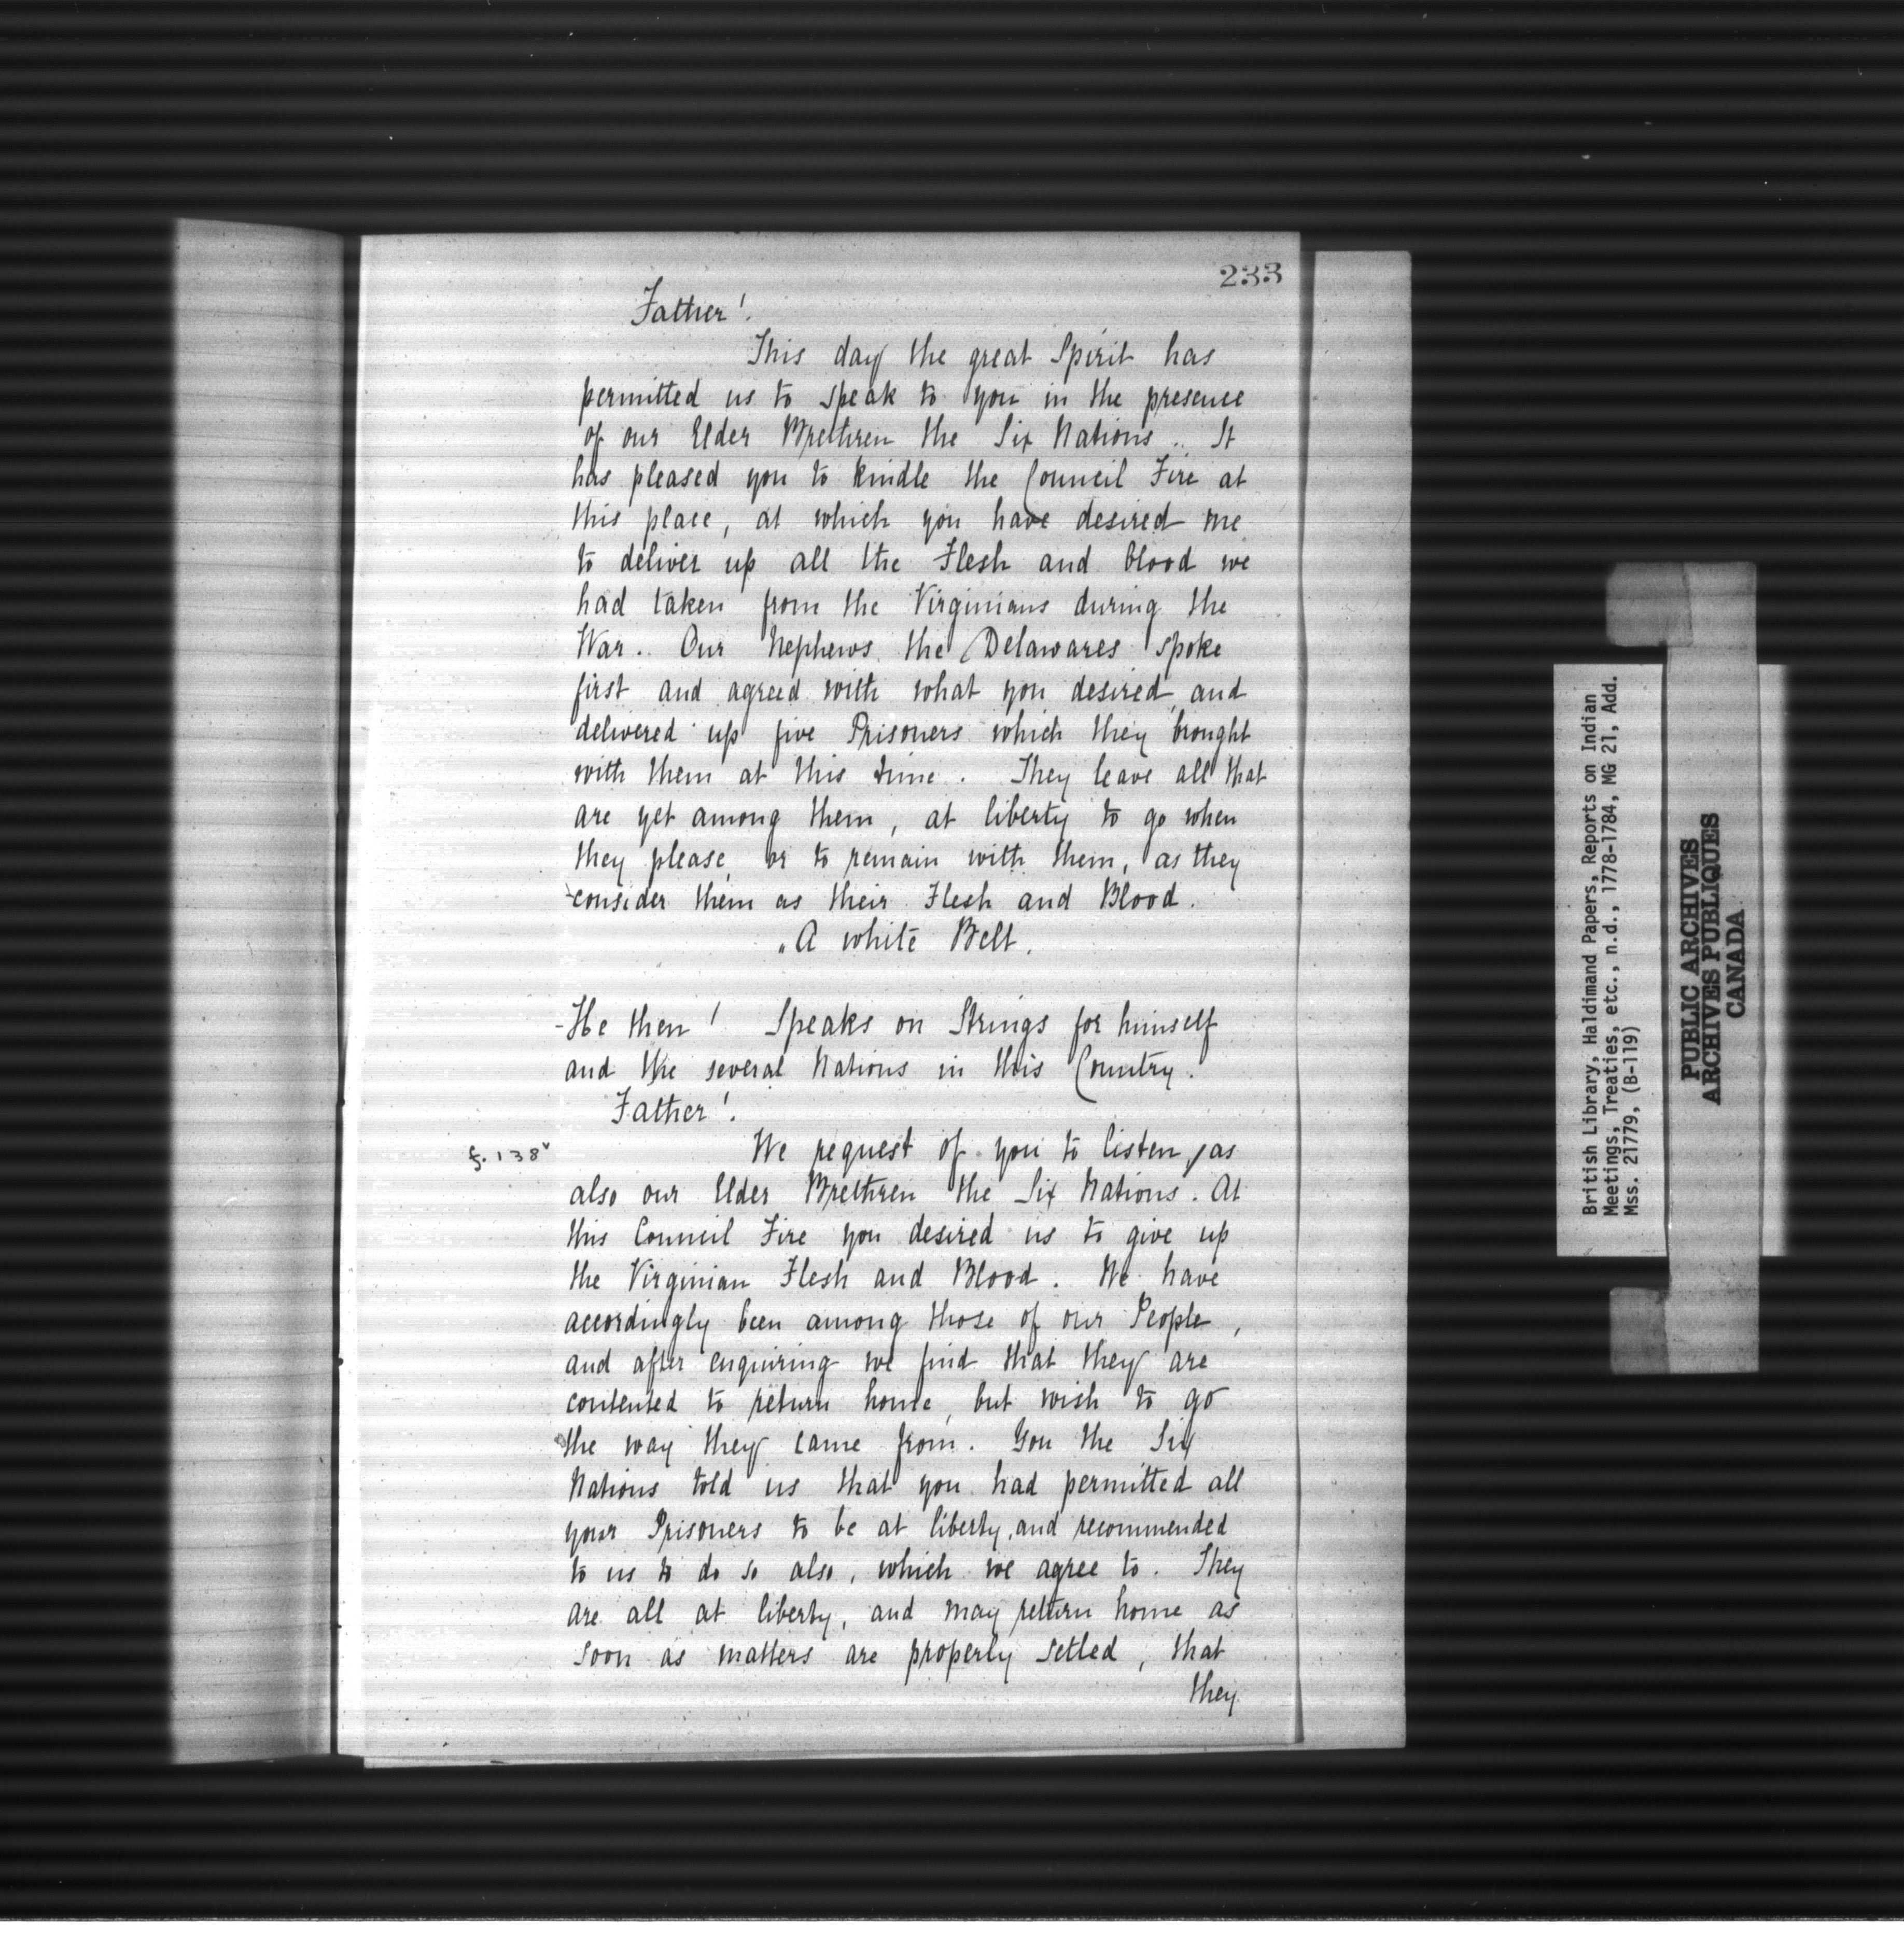 233
Father!
This day the great Spirit has
permitted us to speak to you in the presence
of our Elder Brethren the Six Nations. It
has pleased you to kindle the Council Fire at
this place, at which you have desired me
to deliver up all the Flesh and blood we
had taken from the Virginians during the
War. Our Nephews the Delawares spoke
first and agreed with what you desired, and
delivered up five Prisoners which they brought
with them at this time. They leave all that
are yet among them, at liberty to go when
they please, or to remain with them, as they
consider them as their Flesh and Blood.
"A white Belt.
He then! Speaks on Strings for himself
and the several Nations in this Country.
Father!
f. 138v
We request of you to listen, as
also our Elder Brethren the Six Nations. At
this Council Fire you desired us to give up
the Virginian Flesh and Blood. We have
accordingly been among those of our People,
and after enquiring we find that they are
contented to return home, but wish to go
the way they came from. You the Six
Nations told us that you had permitted all
your Prisoners to be at liberty, and recommended
to us to do so also, which we agree to. They
are all at liberty, and may return home as
soon as matters are properly setled, that
they
British Library, Haldimand Papers, Reports on Indian
Meetings, Treaties, etc., n.d., 1778-1784, MG 21, Add.
Mss. 21779, (B-119)
PUBLIC ARCHIVES
ARCHIVES PUBLIQUES
CANADA